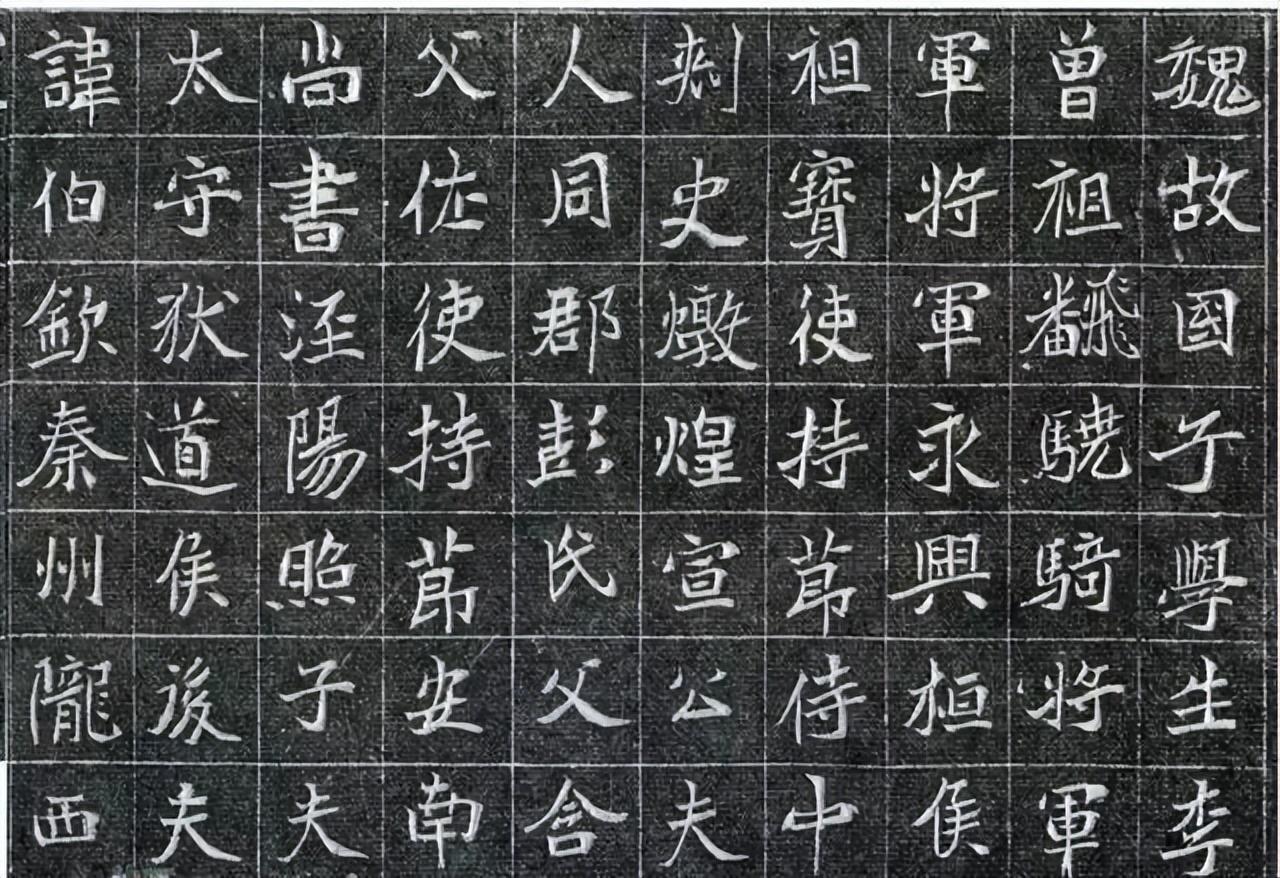 魏故國子學生李
曾祖翻驍騎將軍
軍將軍永興桓侯
祖寶使持節侍中
刺史燉煌宣公夫
人同郡彭氏父含
父佐使持節安南
尚書涇陽照子夫
太守狄道侯後夫
諱伯欽秦州隴西